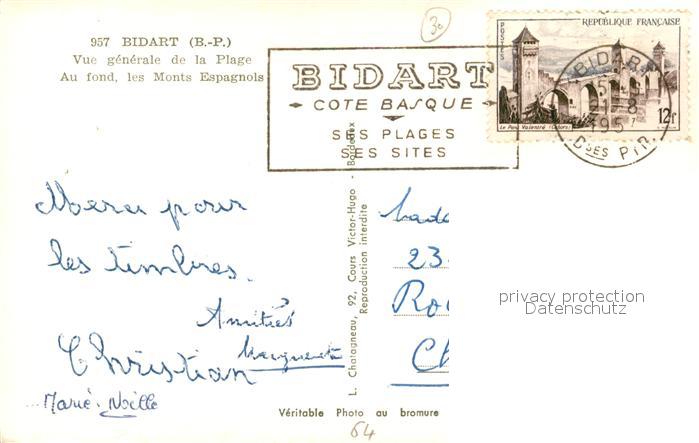 30
957 BIDART (B.-P.)
Vue générale de la Plage
Au fond, les Monts Espagnols
BIDART
COTE BASQUE
SES PLAGES
SES SITES
REPUBLIQUE FRANÇAISE
POSTES
Le Pont Valentré (Cahors)
12f
BIDART
-8
195
Dses PYR.
Merci pour
les timbres.
Amitiés
Christian
Marguerite
Marie-Noëlle
L. Chatagneau, 92, Cours Victor-Hugo - Bordeaux
Reproduction interdite
Mada
23
Ro
C
privacy protection
Datenschutz
Véritable Photo au bromure
64